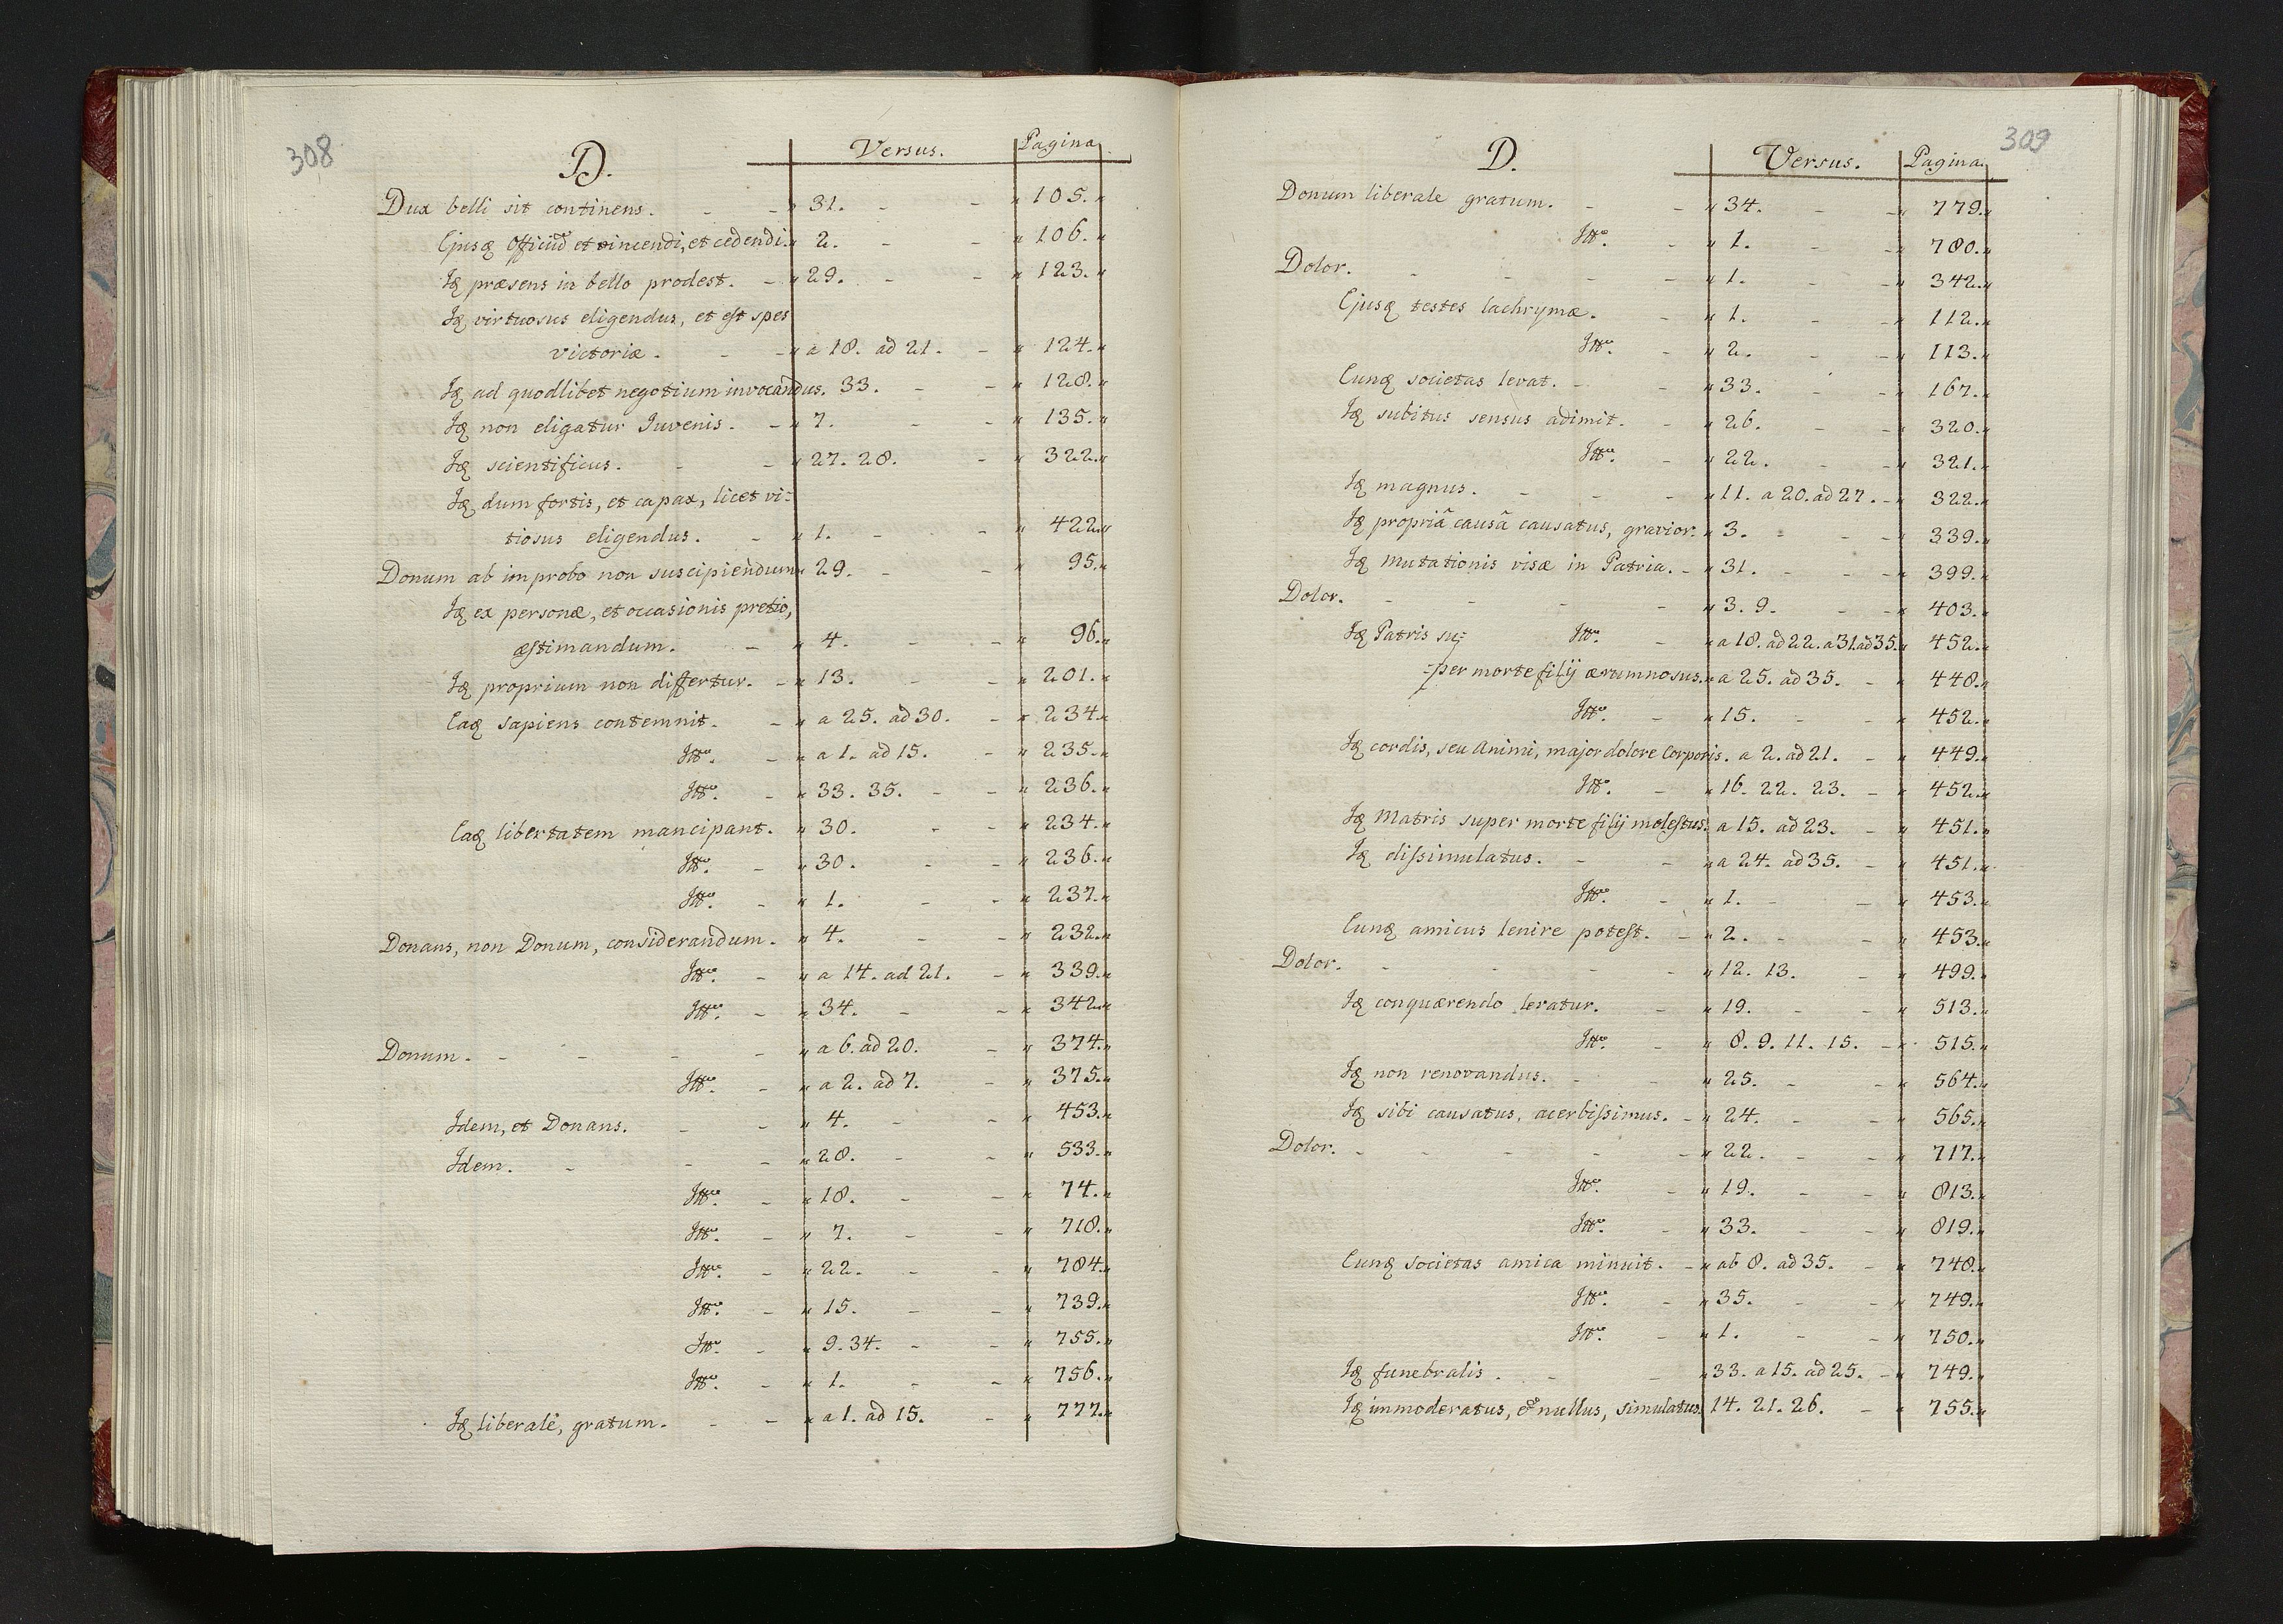 308
D. Versus. Pagina.
Dux belli sit continens. - - „ 31. - - „ 105. „
Ejusq Officiū et vincendi, et cedendi. „ 2. - - „ 106. „
Iq præsens in bello prodest. - „ 29. - - „ 123. „
Iq virtuosus eligendus, et est spes
victoriæ. - - „ a 18. ad 21. - „ 124. „
Iq ad quodlibet negotium invocandus. 33. - - „ 128. „
Iq non eligatur Iuvenis. - „ 7. - - „ 135. „
Iq scientificus. - - „ 27. 28. - „ 322. „
Iq dum fortis, et capax, licet vi-
tiosus eligendus. - „ 1. - - „ 422. „
Donum ab improbo non suscipiendum „ 29. - - „ 95. „
Iq ex personæ, et occasionis pretio,
æstimandum. - „ 4. - - „ 96. „
Iq proprium non differtur. - „ 13. - - „ 201. „
Eaq sapiens contemnit. - „ a 25. ad 30. - „ 234. „
Itto. - „ a 1. ad 15. - „ 235. „
Itto. - „ 33. 35. - - „ 236. „
Eaq libertatem mancipant. „ 30. - - „ 234. „
Itto. - „ 30. - - „ 236. „
Itto. - „ 1. - - „ 237. „
Donans, non Donum, considerandum. „ 4. - - „ 232. „
Itto. - „ a 14. ad 21. - „ 339. „
Itto. - „ 34. - - „ 342. „
Donum. - - - - „ a 6. ad 20. - „ 374. „
Itto. - „ a 2. ad 7. - „ 375. „
Idem, et Donans. - - „ 4. - - „ 453. „
Idem. - - - „ 28. - - „ 533. „
Itto. - „ 18. - - „ 74. „
Itto. - „ 7. - - „ 718. „
Itto. - „ 22. - - „ 784. „
Itto. - „ 15. - - „ 739. „
Itto. - „ 9. 34. - - „ 755. „
Itto. - „ 1. - - „ 756. „
Iq liberale, gratum. - - „ a 1. ad 15. - „ 777. „
309
D. Versus. Pagina.
Donum liberale gratum. - - „ 34. - - „ 779. „
Itto. - „ 1. - - „ 780. „
Dolor. - - - - „ 1. - - „ 342. „
Ejusq testes lachrymæ. - „ 1. - - „ 112. „
Itto. - „ 2. - - „ 113. „
Eunq societas levat. - - „ 33. - - „ 167. „
Iq subitus sensus adimit. - „ 26. - - „ 320. „
Itto. - „ 22. - - „ 321. „
Iq magnus. - - - „ 11. a 20. ad 27. - „ 322. „
Iq propriâ causâ causatus, gravior. „ 3. - - „ 339. „
Iq mutationis visæ in Patria. - „ 31. - - „ 399. „
Dolor. - - - - „ 3. 9. - - „ 403. „
Iq Patris su- Itto. - „ a 18. ad 22. a 31. ad 35. „ 452. „
-per morte filij ærumnosus. „ a 25. ad 35. - „ 448. „
Itto. - „ 15. - - „ 452. „
Iq cordis, seu Animi, major dolore Corporis. a 2. ad 21. - „ 449. „
Itto. - „ 16. 22. 23. - „ 452. „
Iq Matris super morte filij molestus. a 15. ad 23. - „ 451. „
Iq dissimulatus. - - „ a 24. ad 35. - „ 451. „
Itto. - „ 1. - - „ 453. „
Eunq amicus lenire potest. - „ 2. - - „ 453. „
Dolor. - - - - „ 12. 13. - „ 499. „
Iq conquærendo levatur. - „ 19. - - „ 513. „
Itto. - „ 8. 9. 11. 15. - „ 515. „
Iq non renovandus. - - „ 25. - - „ 564. „
Iq sibi causatus, acerbissimus. - „ 24. - - „ 565. „
Dolor. - - - - - „ 22. - - „ 717. „
Itto. - „ 19. - - „ 813. „
Itto. - „ 33. - - „ 819. „
Eunq societas amica minuit. - „ ab 8. ad 35. - „ 748. „
Itto. - „ 35. - - „ 749. „
Itto. - „ 1. - - „ 750. „
Iq funebralis. - - „ 33. a 15. ad 25. - „ 749. „
Iq immoderatus, et nullus, simulatus. 14. 21. 26. - „ 755. „